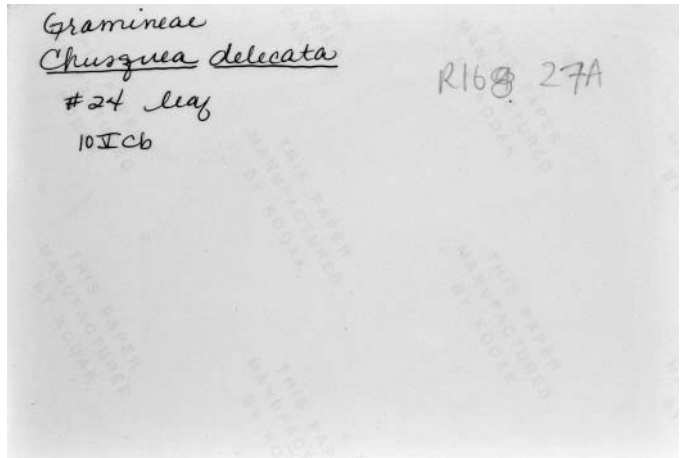 Gramineae
Chusquea delecata
#24 leaf
10 V Cb
R168 27A
THIS PAPER
MANUFACTURED
BY KODAK